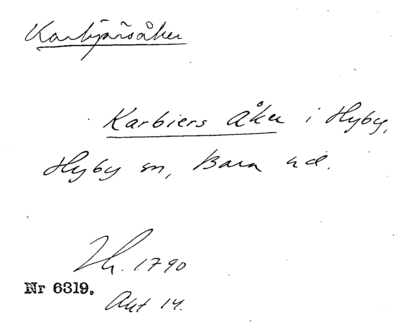 Karbjärsåker
Karbiers Åker i Hyby,
Hyby sn, Bara hd.
Zh. 1790
Nr 6319.
Akt 14.